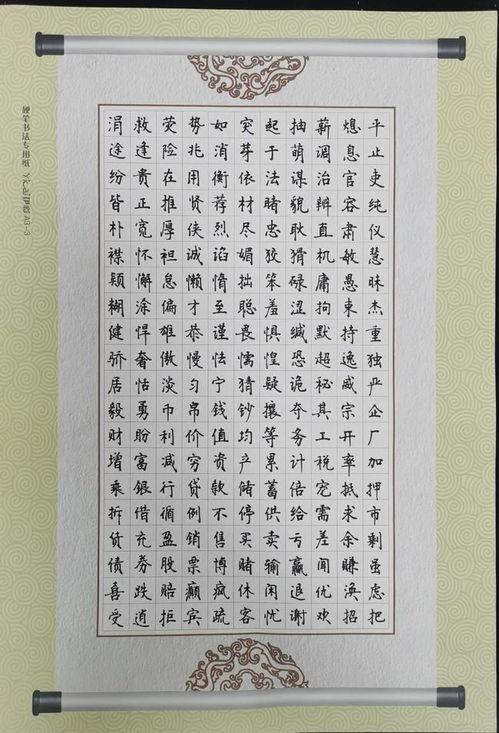 涓救荧势如突起抽薪熄平
途逢险兆消芽于萌调息止
纷贵在用衡依法谋治官吏
皆正推贤荐材睹貌辨容纯
朴宽厚侠烈尽忠耿直肃仪
襟怀袒诚谄媚狡猾机敏慧
颖懈怠懒惰拙笨碌庸愚昧
糊涂偏才至聪羞涩拘束杰
健悍雄恭谨畏惧缄默持重
骄奢傲慢怯懦惶恐超逸独
居恬淡匀宁猜疑诡秘威严
毅勇币帛钱钞攘夺其宗企
财盼利价值均等务工开厂
增富减穷资产累计税率加
乘银行贷款储蓄倍宠抵押
拆借循例不停供给需求市
赁充盈销售买卖亏差余剩
债券股票博赌输赢闻赚虽
喜跌赔癫疯休闲追优涣虑
受逍拒宾疏客忧谢欢招把
硬笔书法专用纸